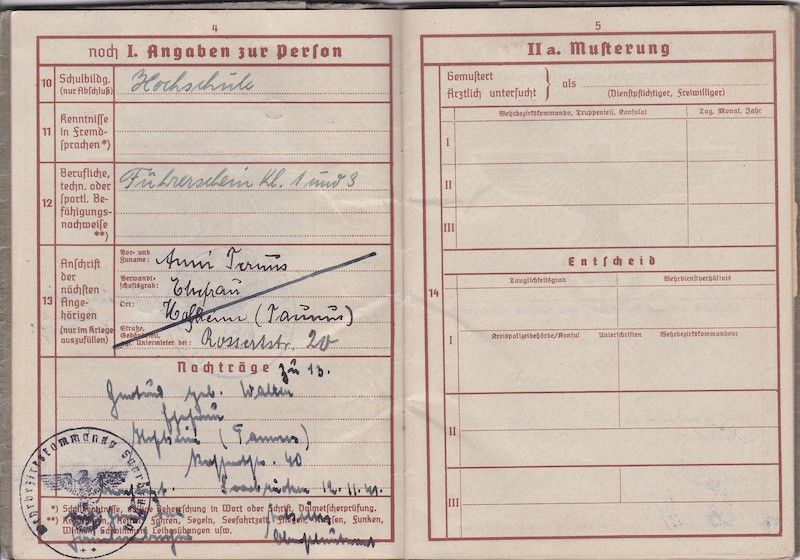 4
noch I. Angaben zur Person
10 Schulbildg. (nur Abschluß)
Hochschule
11 Kenntnisse in Fremd-
sprachen*)
12 Berufliche,
techn. oder
sportl. Be-
fähigungs-
nachweise
**)
Führerschein Kl. 1 und 3
13 Anschrift
der
nächsten
Ange-
hörigen
(nur im Kriege
auszufüllen)
Vor- und Zuname: Anni
Verwandt-
schaftsgrad: Ehefrau
Ort: Hofheim (Taunus)
Straße,
Untermieter bei: Rossertstr. 20
Nachträge zu 13.
geb.
Ehefrau
Hofheim (Taunus)
40
Saarbrücken 12.11.41.
Wehrbezirkskommando
*) Verhandlung Beherrschung in Wort oder Schrift, Dolmetscherprüfung.
**) Fahren, Segeln, Seefahrtzeit, Funken,
Leibesübungen usw.
Oberstleutnant
5
II a. Musterung
Gemustert
Ärztlich untersucht
als
(Dienstpflichtiger, Freiwilliger)
Wehrbezirkskommando, Truppenteil, Konsulat
Tag, Monat, Jahr
I
II
III
Entscheid
14
Tauglichkeitsgrad
Wehrdienstverhältnis
I
Kreispolizeibehörde/Konsul
Unterschriften
Wehrbezirkskommandeur
II
III